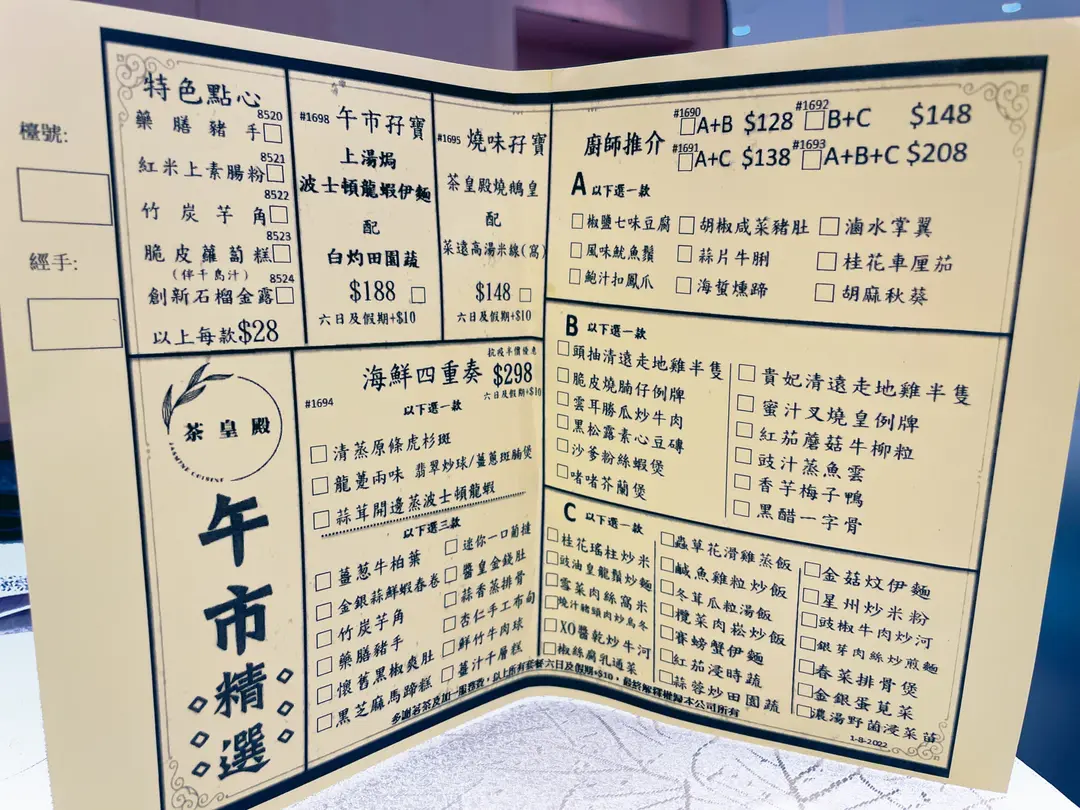 檯號:
經手:
特色點心
8520
藥膳豬手□
8521
紅米上素腸粉□
8522
竹炭芋角□
8523
脆皮蘿蔔糕□
(伴千島汁)
8524
創新石榴金露□
以上每款$28
#1698 午市孖寶
上湯焗
波士頓龍蝦伊麵
配
白灼田園蔬
$188 □
六日及假期+$10
#1695 燒味孖寶
茶皇殿燒鵝皇
配
菜遠高湯米線(窩)
$148 □
六日及假期+$10
廚師推介
#1690 □A+B $128
#1692 □B+C $148
#1691 □A+C $138
#1693 □A+B+C $208
A 以下選一款
□椒鹽七味豆腐 □胡椒咸菜豬肚 □滷水掌翼
□風味魷魚鬚 □蒜片牛脷 □桂花車厘茄
□鮑汁扣鳳爪 □海蜇燻蹄 □胡麻秋葵
B 以下選一款
□頭抽清遠走地雞半隻
□脆皮燒腩仔例牌
□雲耳勝瓜炒牛肉
□黑松露素心豆磚
□沙爹粉絲蝦煲
□啫啫芥蘭煲
□貴妃清遠走地雞半隻
□蜜汁叉燒皇例牌
□紅茄蘑菇牛柳粒
□豉汁蒸魚雲
□香芋梅子鴨
□黑醋一字骨
C 以下選一款
□桂花瑤柱炒米
□豉油皇龍鬚炒麵
□雪菜肉絲窩米
□燒汁豬頸肉炒烏冬
□XO醬乾炒牛河
□椒絲腐乳通菜
□蟲草花滑雞蒸飯
□鹹魚雞粒炒飯
□冬茸瓜粒湯飯
□欖菜肉崧炒飯
□賽螃蟹伊麵
□紅茄浸時蔬
□蒜蓉炒田園蔬
□金菇炆伊麵
□星州炒米粉
□豉椒牛肉炒河
□銀芽肉絲炒煎麵
□春菜排骨煲
□金銀蛋莧菜
□濃湯野菌浸菜苗
1-8-2022
茶皇殿
JASMINE CUISINE
午市精選
#1694
海鮮四重奏 $298
抗疫半價優惠
六日及假期+$10
以下選一款
□清蒸原條虎杉斑
□龍躉兩味 翡翠炒球/薑蔥斑腩煲
□蒜茸開邊蒸波士頓龍蝦
以下選三款
□薑蔥牛柏葉
□金銀蒜鮮蝦春卷
□竹炭芋角
□藥膳豬手
□懷舊黑椒爽肚
□黑芝麻馬蹄糕
□迷你一口葡撻
□醬皇金錢肚
□蒜香蒸排骨
□杏仁手工布甸
□鮮竹牛肉球
□薑汁千層糕
多謝茗茶及加一服務費，以上所有套餐六日及假期+$10，最終解釋權歸本公司所有